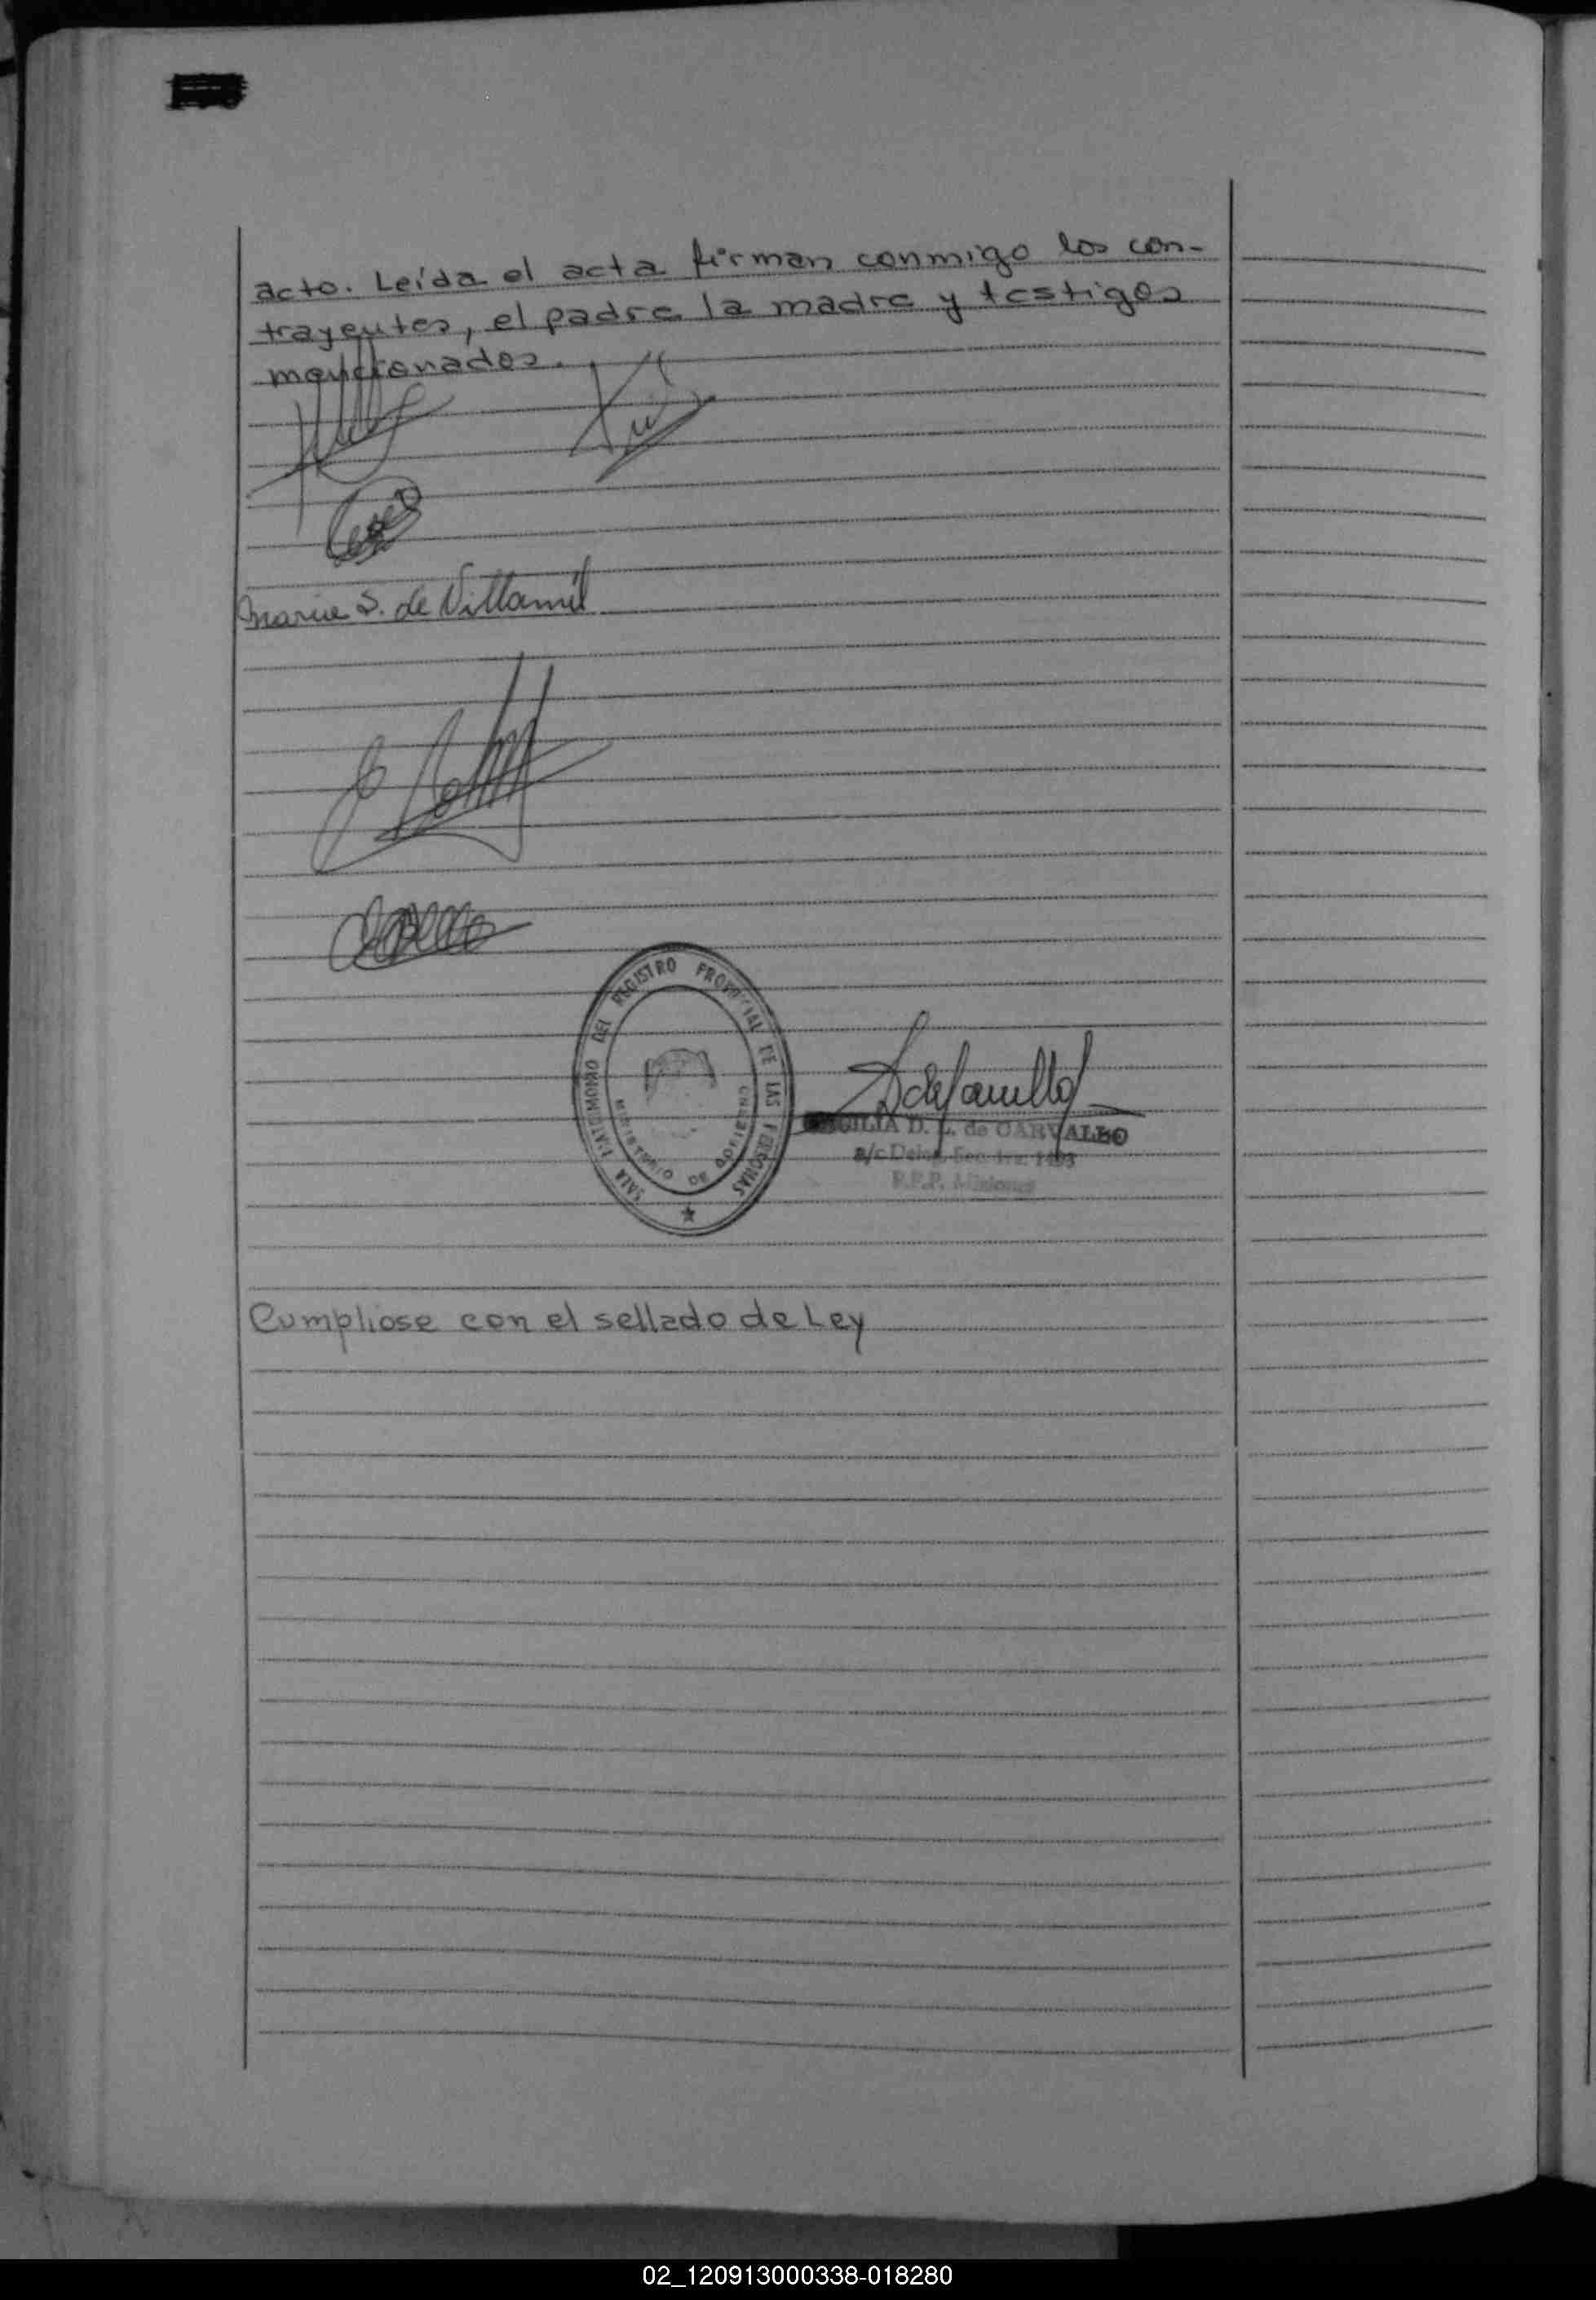 acto. Leída el acta firman conmigo los con-
trayentes, el padre la madre y testigos
mencionados.
Maria S. de Villamil
SALA MATRIMONIO DEL REGISTRO PROVINCIAL DE LAS PERSONAS
MINISTERIO DE GOBIERNO
D. L. de CARVALHO
a/c Deleg.
R.P.P. Misiones
Cumpliose con el sellado de Ley
02_120913000338-018280